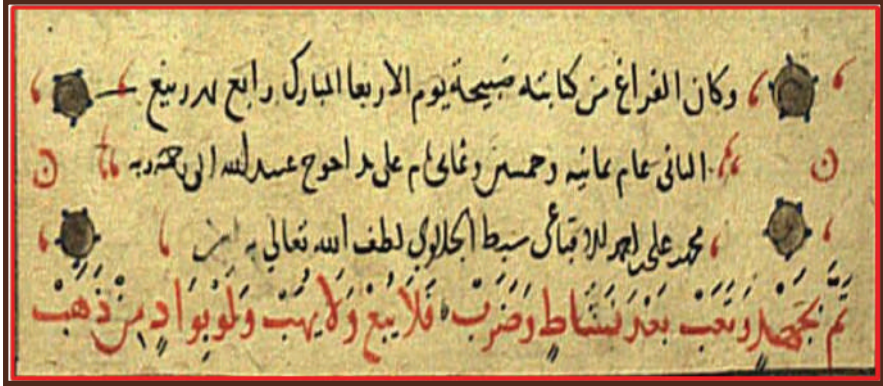 وكان الفراغ من كتابته صبيحة يوم الاربعا المبارك رابع شهر ربيع
الثاني عام ثمانيه وخمسين وثمانمائه على يد احوج عبيد الله الى رحمة ربه
محمد علي سبط الجلالوي لطف الله تعالي به
تَمَّ بجَهْدٍ وَتَعَبْ بَعْدَ نَشَاطٍ وَضَرَبْ فَلَا يُبَعْ وَلَا يُهَبْ وَلَوْ بِوَادٍ مِنْ ذَهَبْ